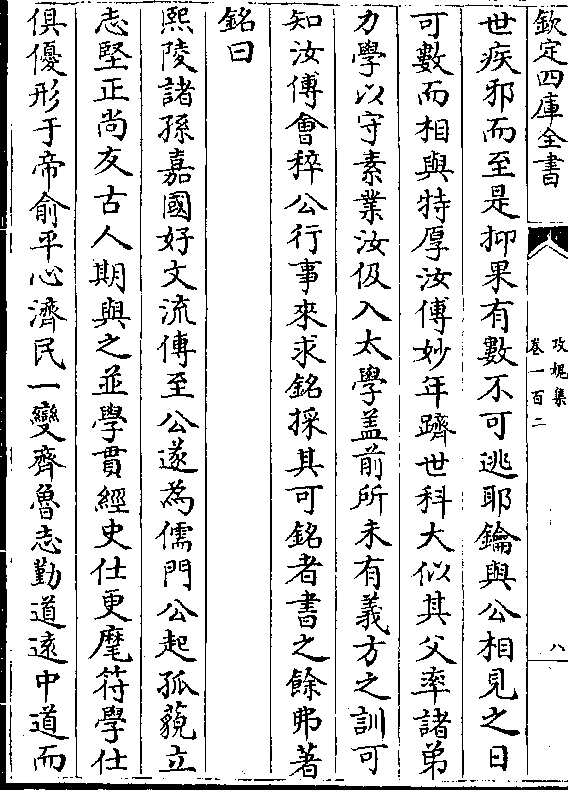 欽定四庫全書
攻媿集
卷一百二
八
世疾邪而至是抑果有數不可逃耶鑰與公相見之日
可數而相與特厚汝傅妙年躋世科大似其父率諸弟
力學以守素業汝伋入太學盖前所未有義方之訓可
知汝傅會稡公行事來求銘採其可銘者書之餘弗著
銘曰
熙陵諸孫嘉國好文流傳至公遂為儒門公起孤藐立
志堅正尚友古人期與之並學貫經史仕更麾符學仕
俱優形于帝俞平心濟民一變齊魯志勤道遠中道而